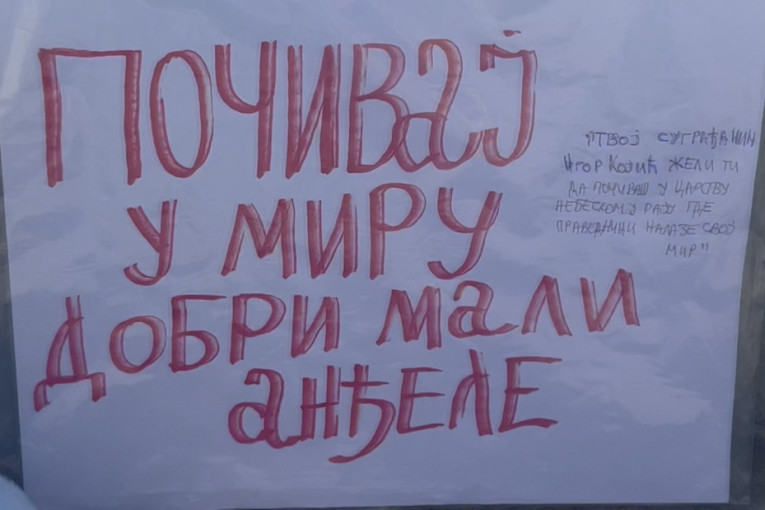 ПОЧИВАЈ
У МИРУ
ДОБРИ МАЛИ
АНЂЕЛЕ
"ТВОЈ СУГРАЂАНИН
ИГОР КОЈИЋ ЖЕЛИ ТИ
ДА ПОЧИВАШ У ЦАРСТВУ
НЕБЕСКОМ У РАЈУ ГДЕ
ПРАВЕДНИЦИ НАЛАЗЕ СВОЈ
МИР"